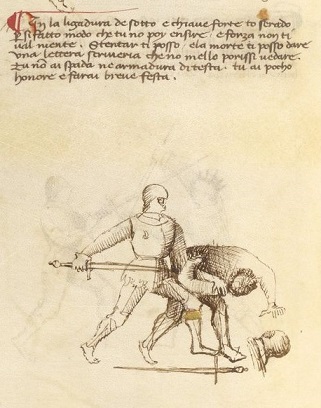 In la ligadura de sotto e chiave forte to serado
Per si fatto modo che tu no poy ensire, e forza non ti
val niente. Stentar ti posso, e la morte ti posso dare
una lettera scriveria che no mello porissi vedare.
Tu no ai spada ne armadura di testa. tu ai pocho
honore e farai breve festa.